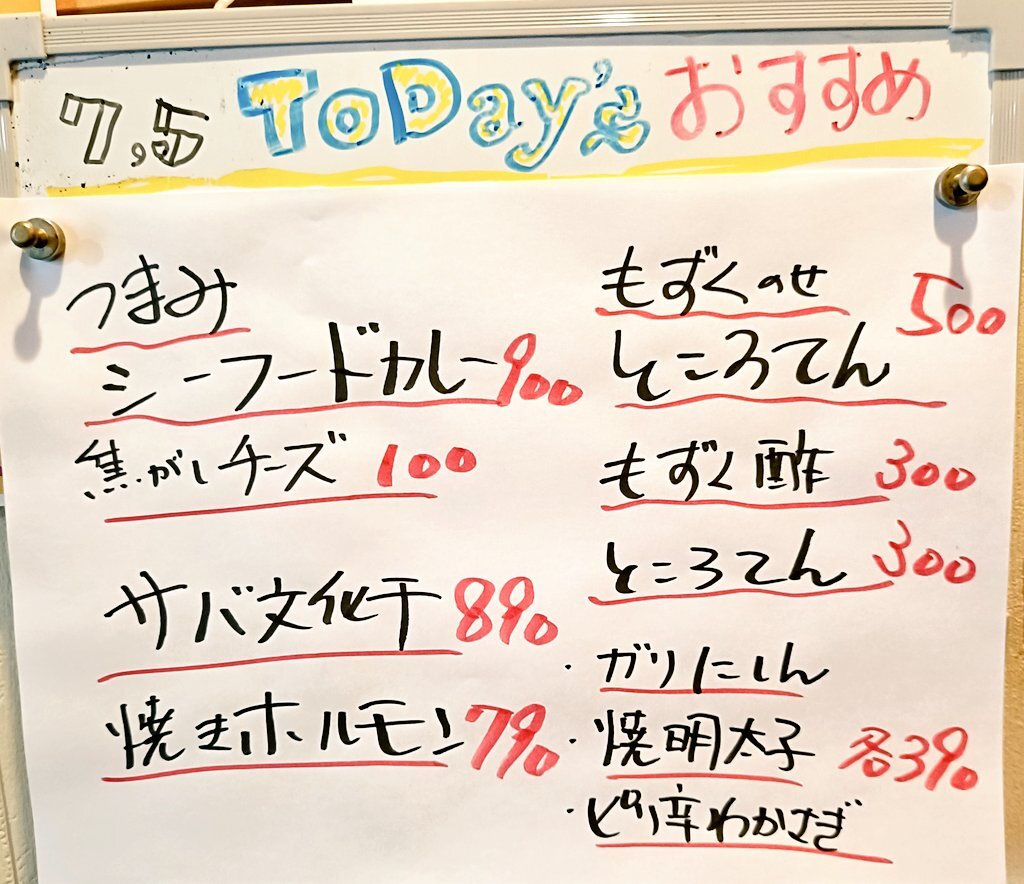 7,5 ToDay's おすすめ
つまみ
シーフードカレー 900
焦がしチーズ 100
サバ文化干 890
焼きホルモン 790
もずくのせ
ところてん 500
もずく酢 300
ところてん 300
・ガリにしん
・焼明太子 各390
・ピリ辛わかさぎ